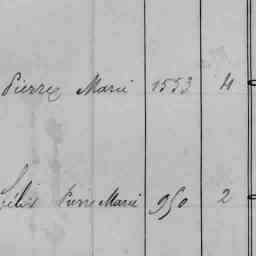 Pierre Marie 1553 4
Félix Pierre Marie 950 2